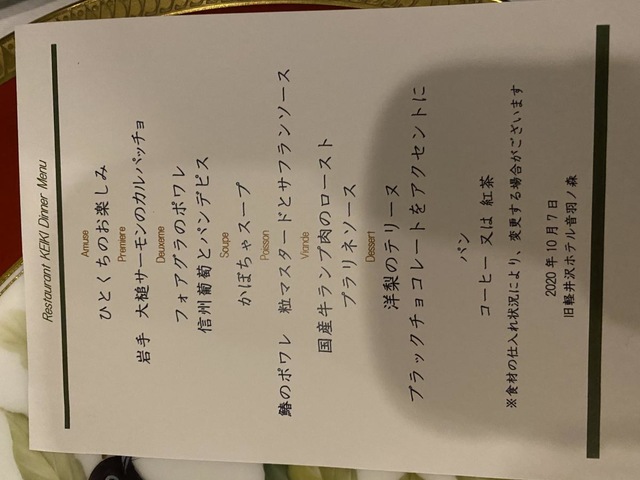 Restaurant KEIKI Dinner Menu
Amuse
ひとくちのお楽しみ
Première
岩手 大槌サーモンのカルパッチョ
Deuxème
フォアグラのポワレ
信州葡萄とパンデピス
Soupe
かぼちゃスープ
Poisson
鰆のポワレ 粒マスタードとサフランソース
Viande
国産牛ランプ肉のロースト
プラリネソース
Dessert
洋梨のテリーヌ
ブラックチョコレートをアクセントに
パン
コーヒー 又は 紅茶
※食材の仕入れ状況により、変更する場合がございます
2020年10月7日
旧軽井沢ホテル音羽ノ森